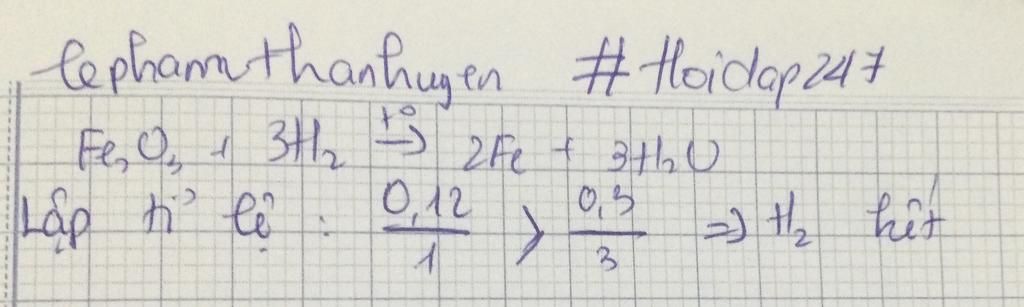 lephamthanhuyen #Hoidap247
Fe₂O₃ + 3H₂ t°→ 2Fe + 3H₂O
Lập tỉ lệ : 0,12/1 > 0,3/3 => H₂ hết